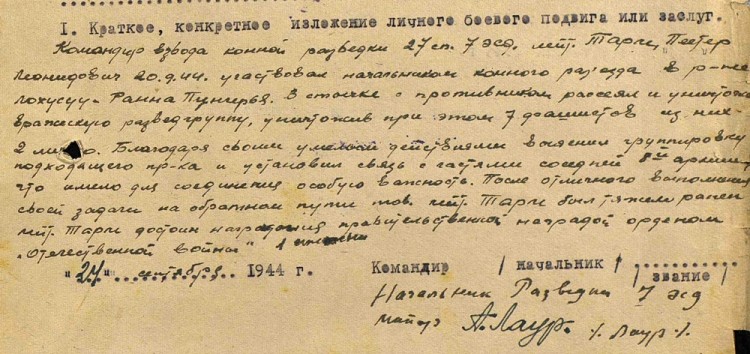 I. Краткое, конкретное изложение личного боевого подвига или заслуг.
Командир взвода конной разведки 27 сп. 7 эсд. лейт. Тарги, Пеетер
Леонидович 20.9.44. участвовал начальником конного раз'езда в р-не
Лохусуу - Ранна Пунгерья. В стычке с противником рассеял и уничтожил
вражескую разведгруппу, уничтожив при этом 7 фашистов из них
2 лично. Благодаря своим умелым действиями выяснил группировку
подходящего пр-ка и установил связь с частями соседней 8ой армии,
что имело для соединения особую важность. После отличного выполнения
своей задачи на обратном пути тов. лейт. Тарги был тяжело ранен
лейт. Тарги достоин награждения правительственной наградой орденом
„Отечественной войны"
"27" сентября 1944 г. Командир /начальник/ /звание/
Начальник Разведки 7 эсд
майор А.Лаур. /. Лаур ./